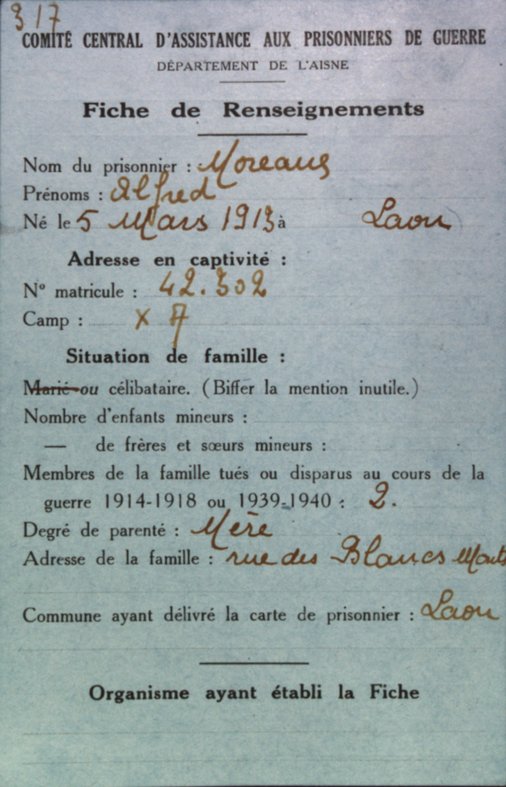 317
COMITÉ CENTRAL D'ASSISTANCE AUX PRISONNIERS DE GUERRE
DÉPARTEMENT DE L'AISNE
Fiche de Renseignements
Nom du prisonnier : Moreaux
Prénoms : Alfred
Né le 5 Mars 1913 à Laon
Adresse en captivité :
N° matricule : 42.302
Camp : X A
Situation de famille :
Marié ou célibataire. (Biffer la mention inutile.)
Nombre d'enfants mineurs :
— de frères et sœurs mineurs :
Membres de la famille tués ou disparus au cours de la
guerre 1914-1918 ou 1939-1940 : 2.
Degré de parenté : Mère
Adresse de la famille : rue des Blancs Monts
Commune ayant délivré la carte de prisonnier : Laon
Organisme ayant établi la Fiche